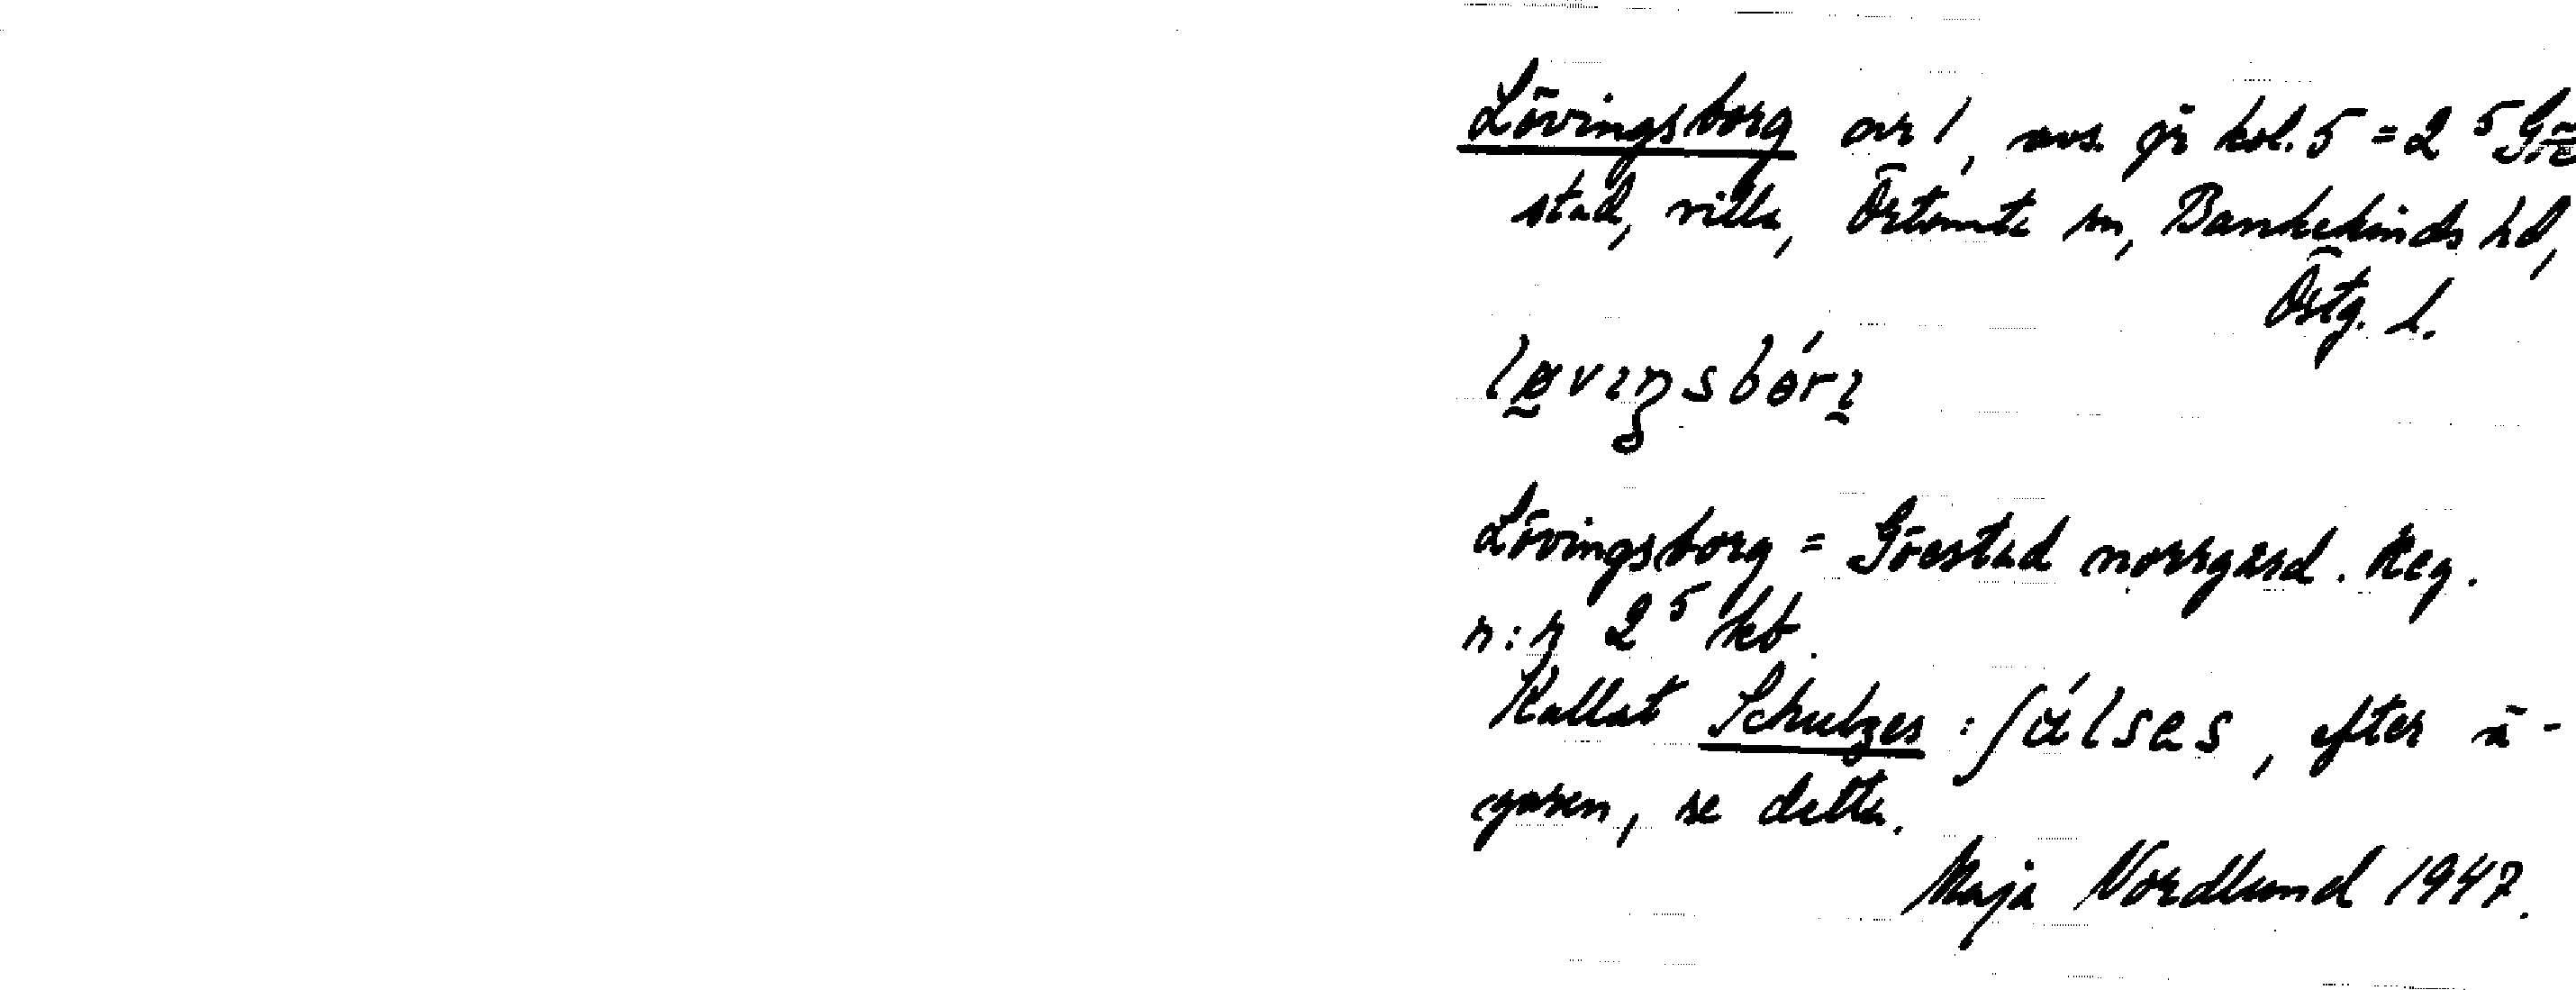 Lövingsborg avs 1, avs. fr kol. 5 = 2 ⁵ Göe
stad, villa, Örtomta sn, Bankekinds hd,
Östg. l.
løvıŋsbórı
Lövingsborg = Göestad norrgård. Reg.
n:r 2⁵ kb.
Kallat Schulzes : ʃálses, efter ä-
garen, se detta.
Maja Nordlund 1947.